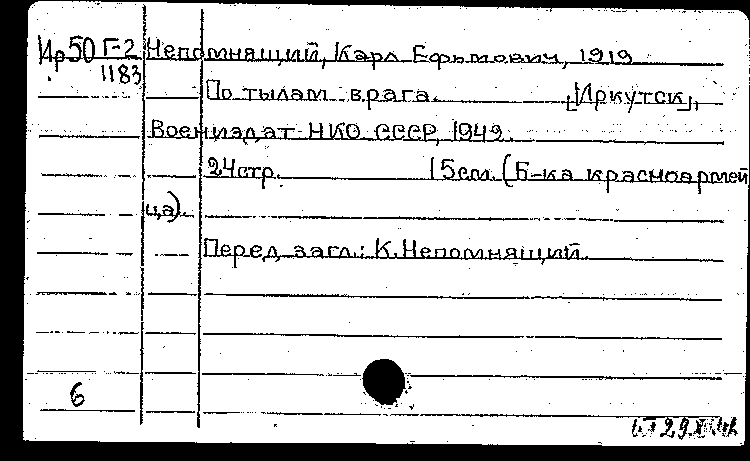 Ир50 Г-2 Непомнящий, Карл Ефимович, 1919
1183
По тылам врага. [Иркутск],
Воениздат НКО СССР, 1942.
24стр. 15см. (Б-ка красноармей
ца).
Перед загл.: К.Непомнящий.
6
29